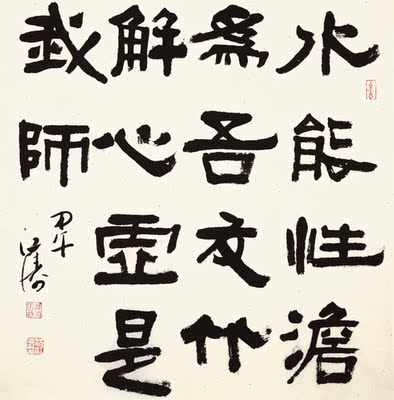 水能性澹
為吾友竹
解心虛是
我師
甲午